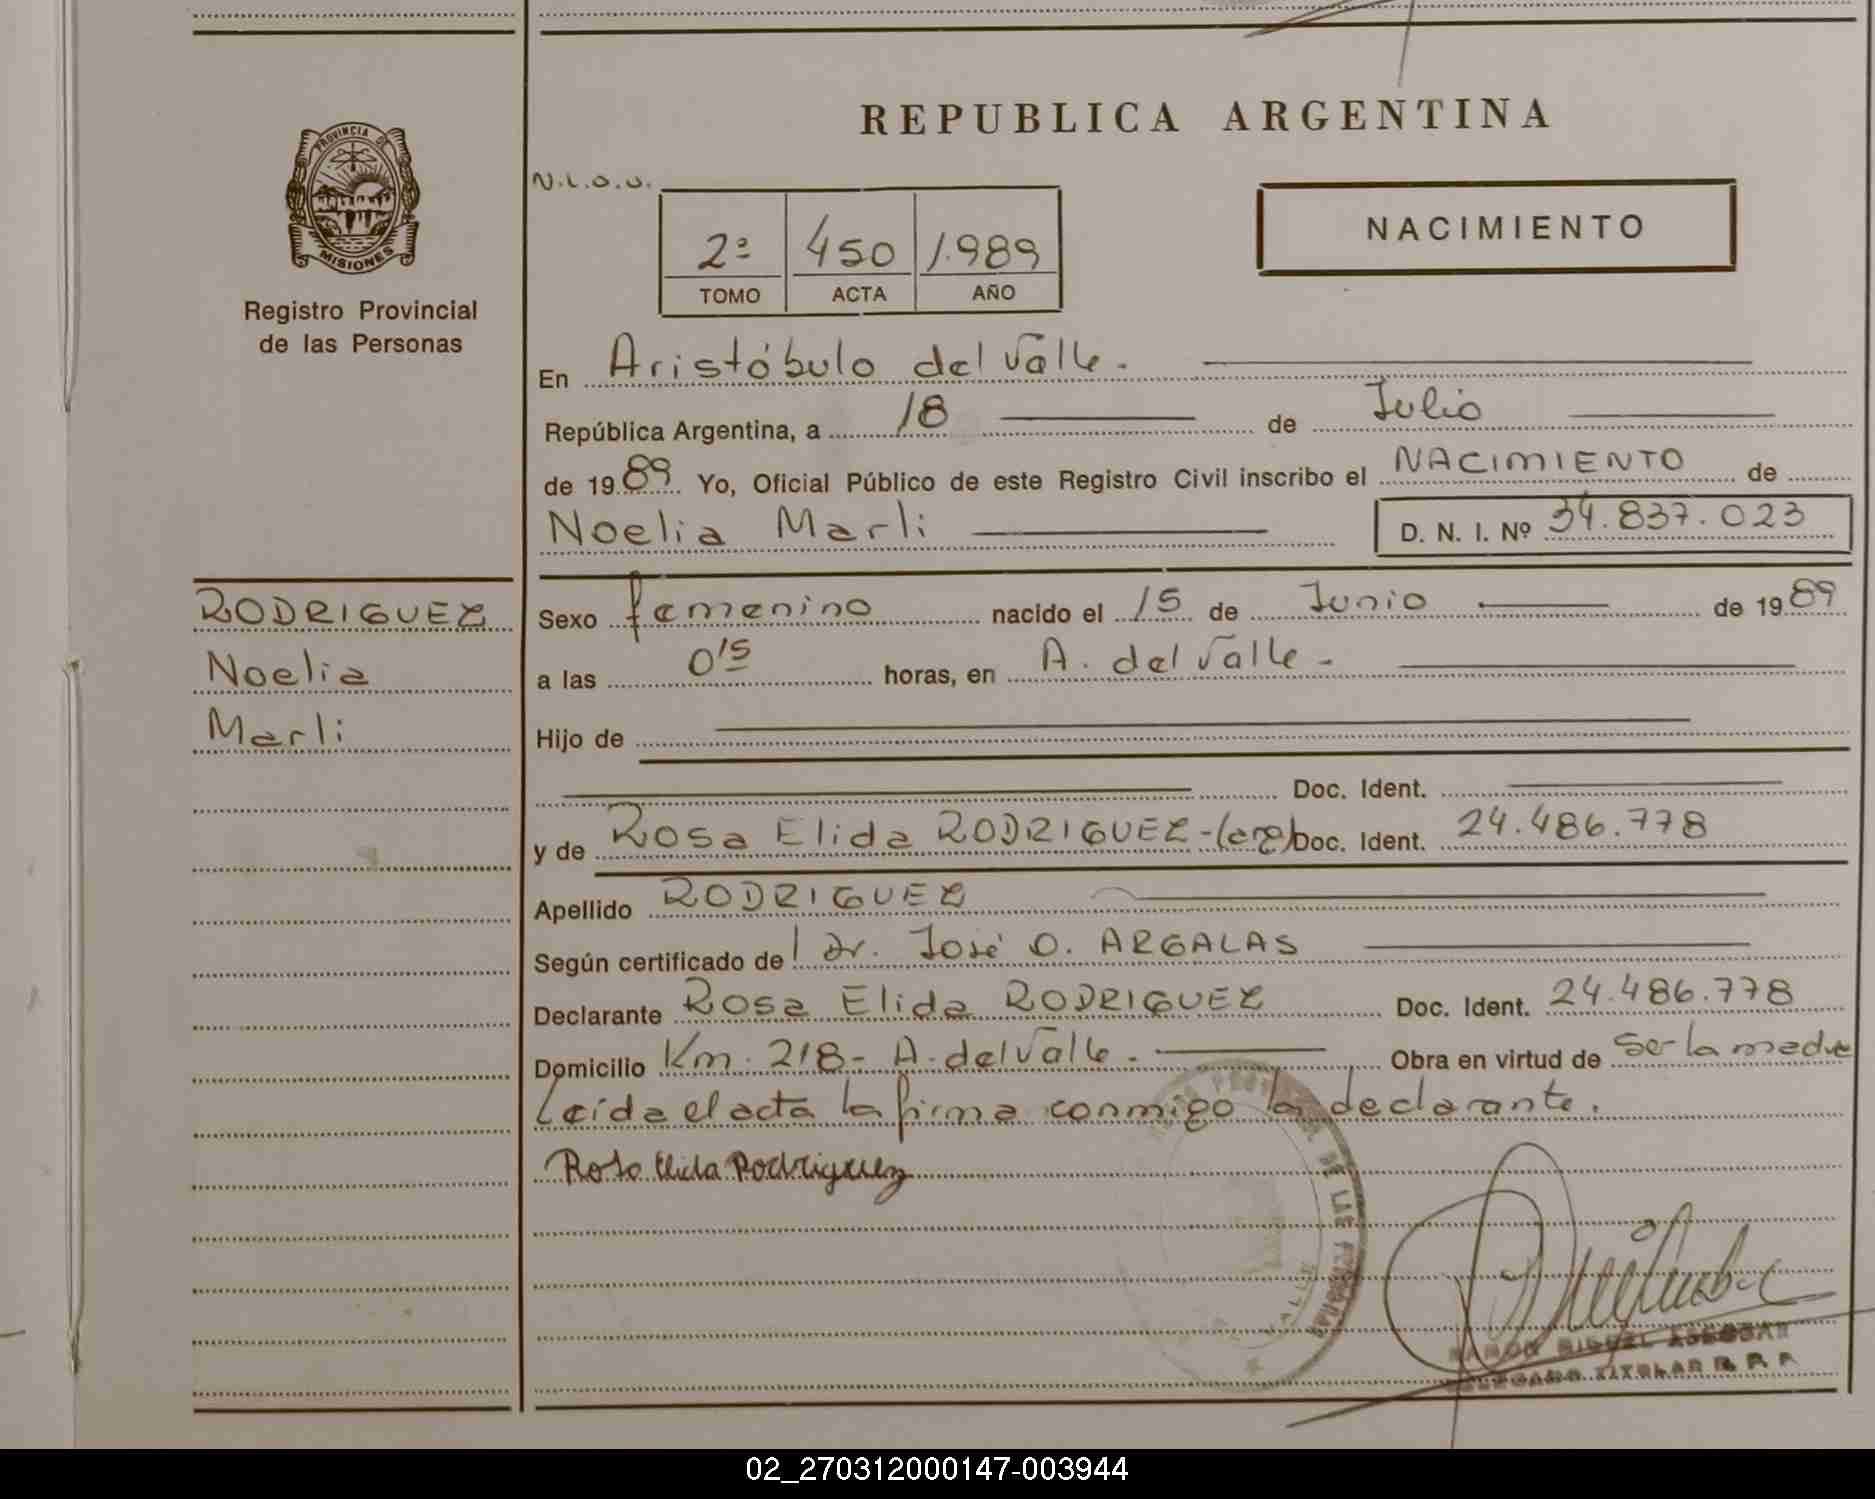 PROVINCIA DE
MISIONES
Registro Provincial
de las Personas
REPUBLICA ARGENTINA
N.L.O.U.
2ª 450 1.989
TOMO ACTA AÑO
NACIMIENTO
En Aristóbulo del Valle.
República Argentina, a 18 de Julio
de 1989 Yo, Oficial Público de este Registro Civil inscribo el NACIMIENTO de
Noelia Marli D. N. I. Nº 34.837.023
RODRIGUEZ
Noelia
Marli
Sexo femenino nacido el 15 de Junio de 1989
a las 0 15 horas, en A. del Valle.
Hijo de
Doc. Ident.
y de Rosa Elida RODRIGUEZ-(arg) Doc. Ident. 24.486.778
Apellido RODRIGUEZ
Según certificado de Dr. José O. ARGALAS
Declarante Rosa Elida RODRIGUEZ Doc. Ident. 24.486.778
Domicilio Km. 218- A. del Valle. Obra en virtud de ser la madre
Leída el acta la firma conmigo la declarante.
Rosa Elida Rodriguez
DE LAS PERSONAS
VALLE
RAMON MIGUEL
TITULAR R. P. P.
02_270312000147-003944